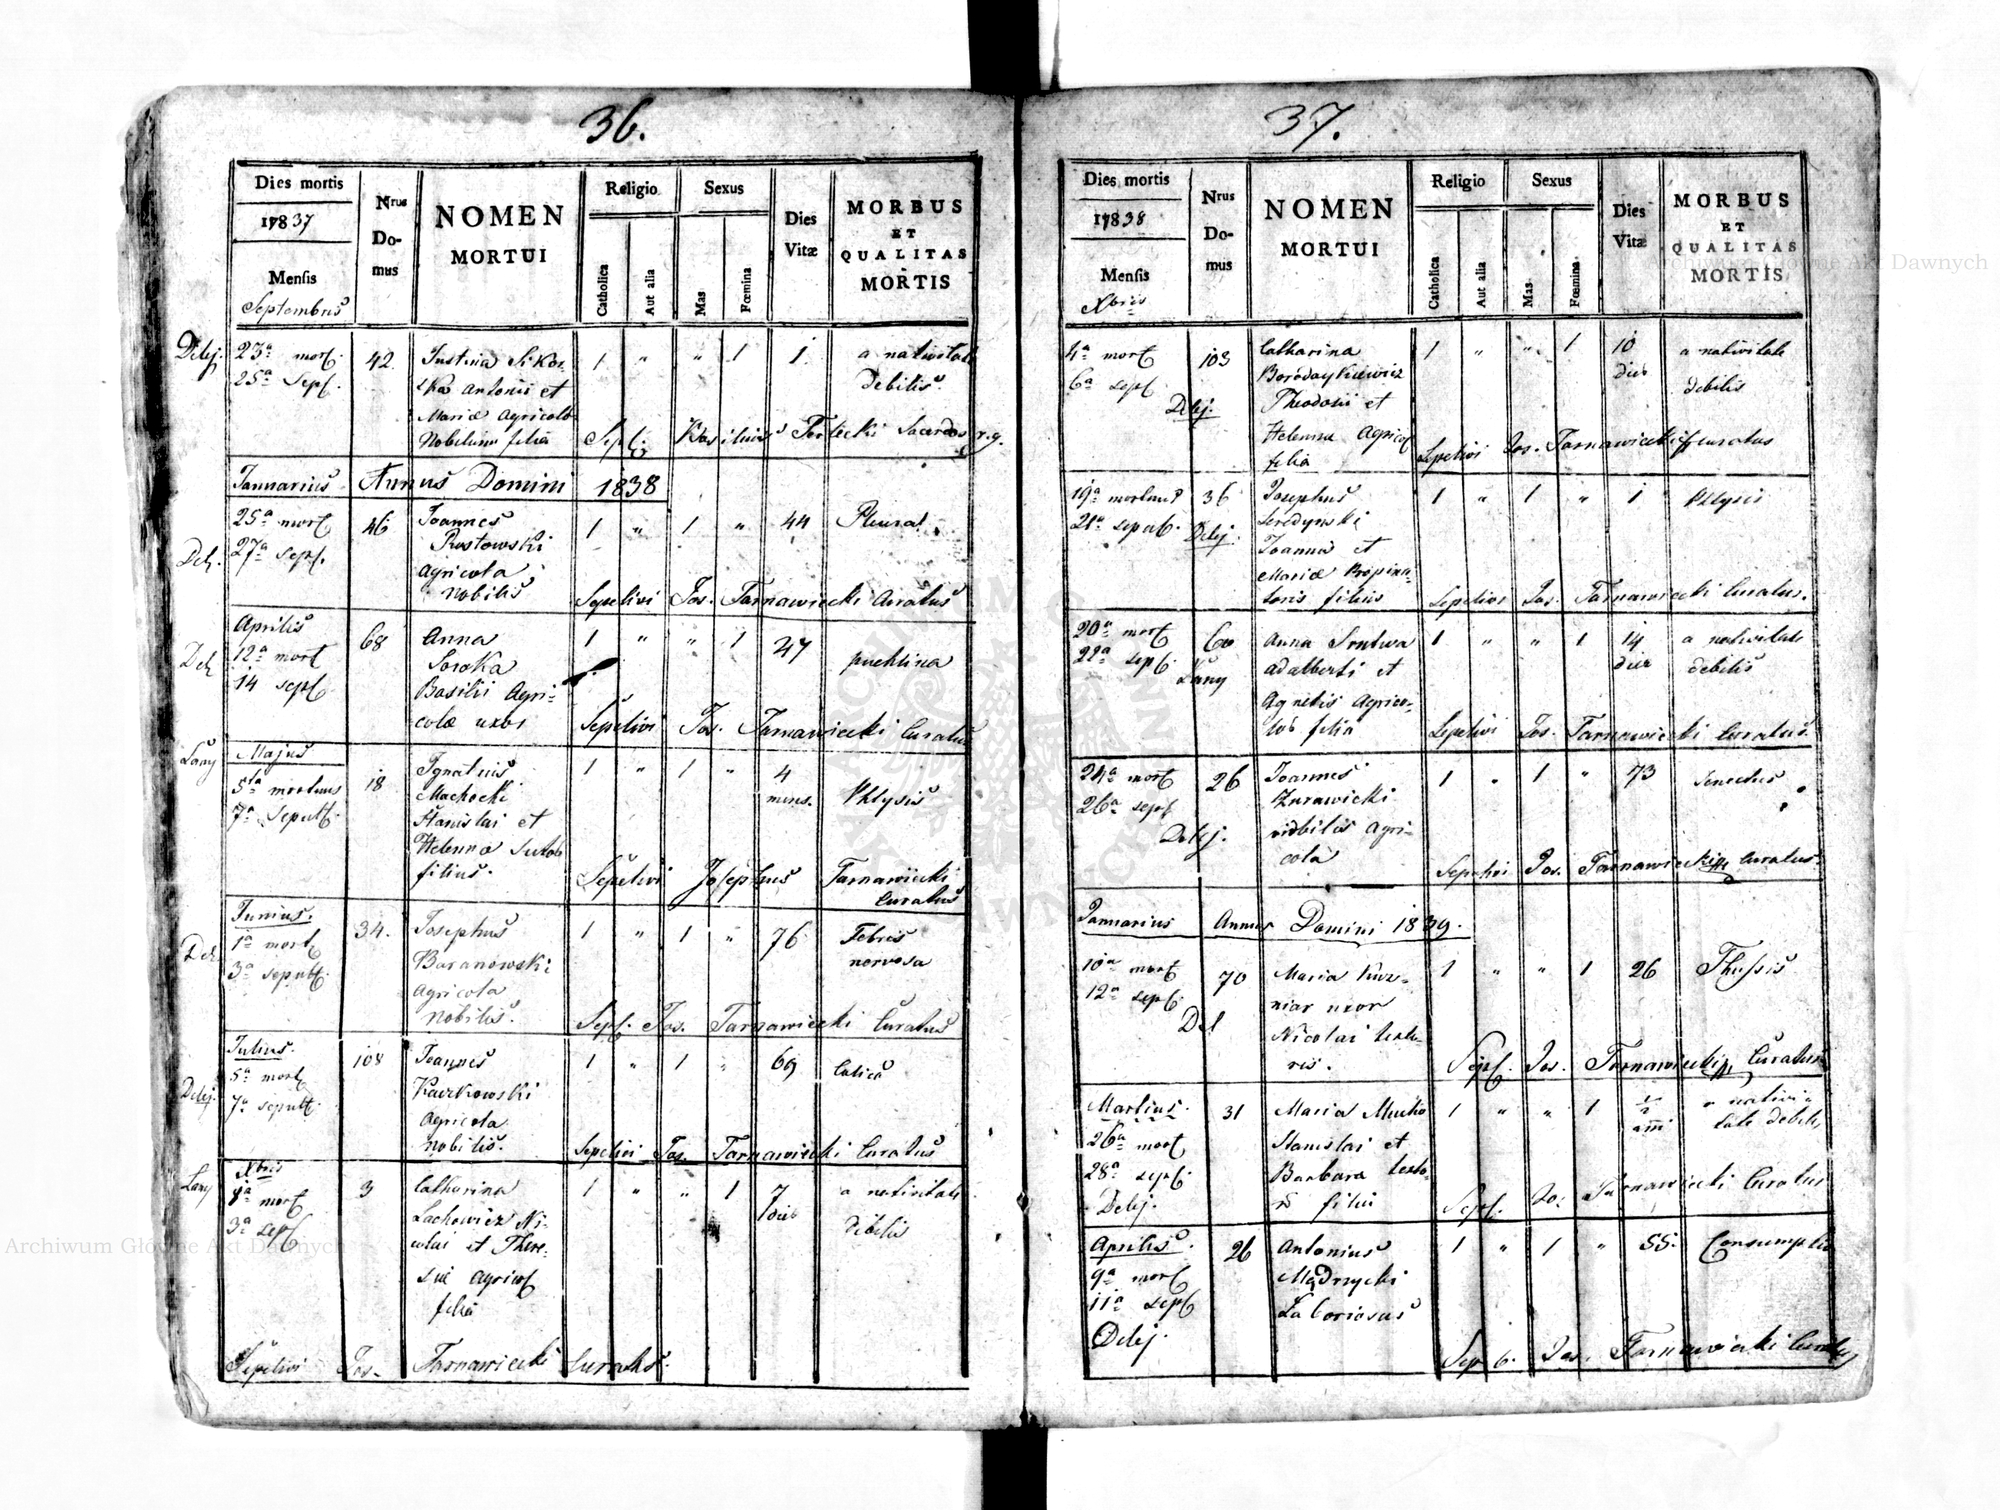 36.
Dies mortis
1837
Mensis
Septembris
Nrus
Do-
mus
NOMEN
MORTUI
Religio
Catholica
Aut alia
Sexus
Mas
Fœmina
Dies
Vitæ
MORBUS
ET
QUALITAS
MORTIS
Delej.
23a mort.
25a Sept.
42.
Justina Sikor-
ska Antonii et
Mariæ Agricola
Nobilium filia
1 " " 1 1
a nativitate
debilis
Sept. Basilius Tertecki Sacerdos r. g.
Januarius Annus Domini 1838
Del.
25a mort
27a sept.
46
Joannes
Rostowski
Agricola
Nobilis
1 " 1 " 44
Pleura
Sepelivi Jos. Tarnawiecki Curatus
Aprilis
Del
12a mort
14 sept
68
Anna
Soroka
Basilii Agri-
colæ uxor
1 " " 1 27
puchlina
Sepelivi Jos. Tarnawiecki Curatus
Łany
Majus
5ta mortuus
7a Sepult.
18
Ignatius
Machocki
Stanislai et
Helennæ
filius.
1 " 1 " 4
mens.
Phtysis
Sepelivi Josephus Tarnawiecki
Curatus
Junius.
Del
1a mort
3a sepult.
34.
Josephus
Baranowski
Agricola
Nobilis.
1 " 1 " 76
Febris
nervosa
Sept. Jos. Tarnawiecki Curatus
Julius.
Delej.
5a mort
7a sepult.
108
Joannes
Kaczkowski
Agricola
Nobilis.
1 " 1 " 69
Colica
Sepelivi Jos. Tarnawiecki Curatus
Xbris
Łany
1a mort
3a sept
3
Catharina
Lachowicz Ni-
colai et There-
siæ Agricol
filia
1 " " 1 7
dies
a nativitate
debilis
Sepelivi Jos. Tarnawiecki Curatus.
37.
Dies mortis
1838
Mensis
Xbris
Nrus
Do-
mus
NOMEN
MORTUI
Religio
Catholica
Aut alia
Sexus
Mas
Fœmina
Dies
Vitæ
MORBUS
ET
QUALITAS
MORTIS
4a mort
6a sept
Delej.
103
Catharina
Borodaykiewicz
Theodosii et
Helenna Agricol
filia
1 " " 1 10
dies
a nativitate
debilis
Sepelivi Jos. Tarnawiecki Curatus
19a mortuus
21a sepult.
Delej.
36
Josephus
Seredynski
Joannis et
Mariæ Propina-
toris filius
1 " 1 " 1
Phtysis
Sepelivi Jos. Tarnawiecki Curatus.
20a mort
22a sept.
Łany
60
Anna
Adalberti et
Agnetis Agrico-
filia
1 " " 1 14
dies
a nativitate
debilis
Sepelivi Jos. Tarnawiecki Curatus.
24a mort
26a sept
Delej.
26
Joannes
Zurawicki
nobilis Agri-
cola
1 " 1 " 73
Senectus
Sepelivi Jos. Tarnawiecki Curatus
Januarius Annus Domini 1839.
10a mort
12a sept.
Del
70
Maria Kuz-
niar uxor
Nicolai texto-
ris.
1 " " 1 26
Thussis
Sept. Jos. Tarnawiecki Curatus
Martius.
26a mort
28a sept.
Delej.
31
Maria Mucha
Stanislai et
Barbara texto-
filia
1 " " 1 ½
a nativi-
tate debilis
Sept. Jos. Tarnawiecki Curatus
Aprilis.
9a mort
11a sept
Delej.
26
Antonius
Mądrzycki
Laboriosus
1 " 1 " 55.
Consumptio
Sept. Jos. Tarnawiecki Curatus
Archiwum Główne Akt Dawnych
Archiwum Główne Akt Dawnych